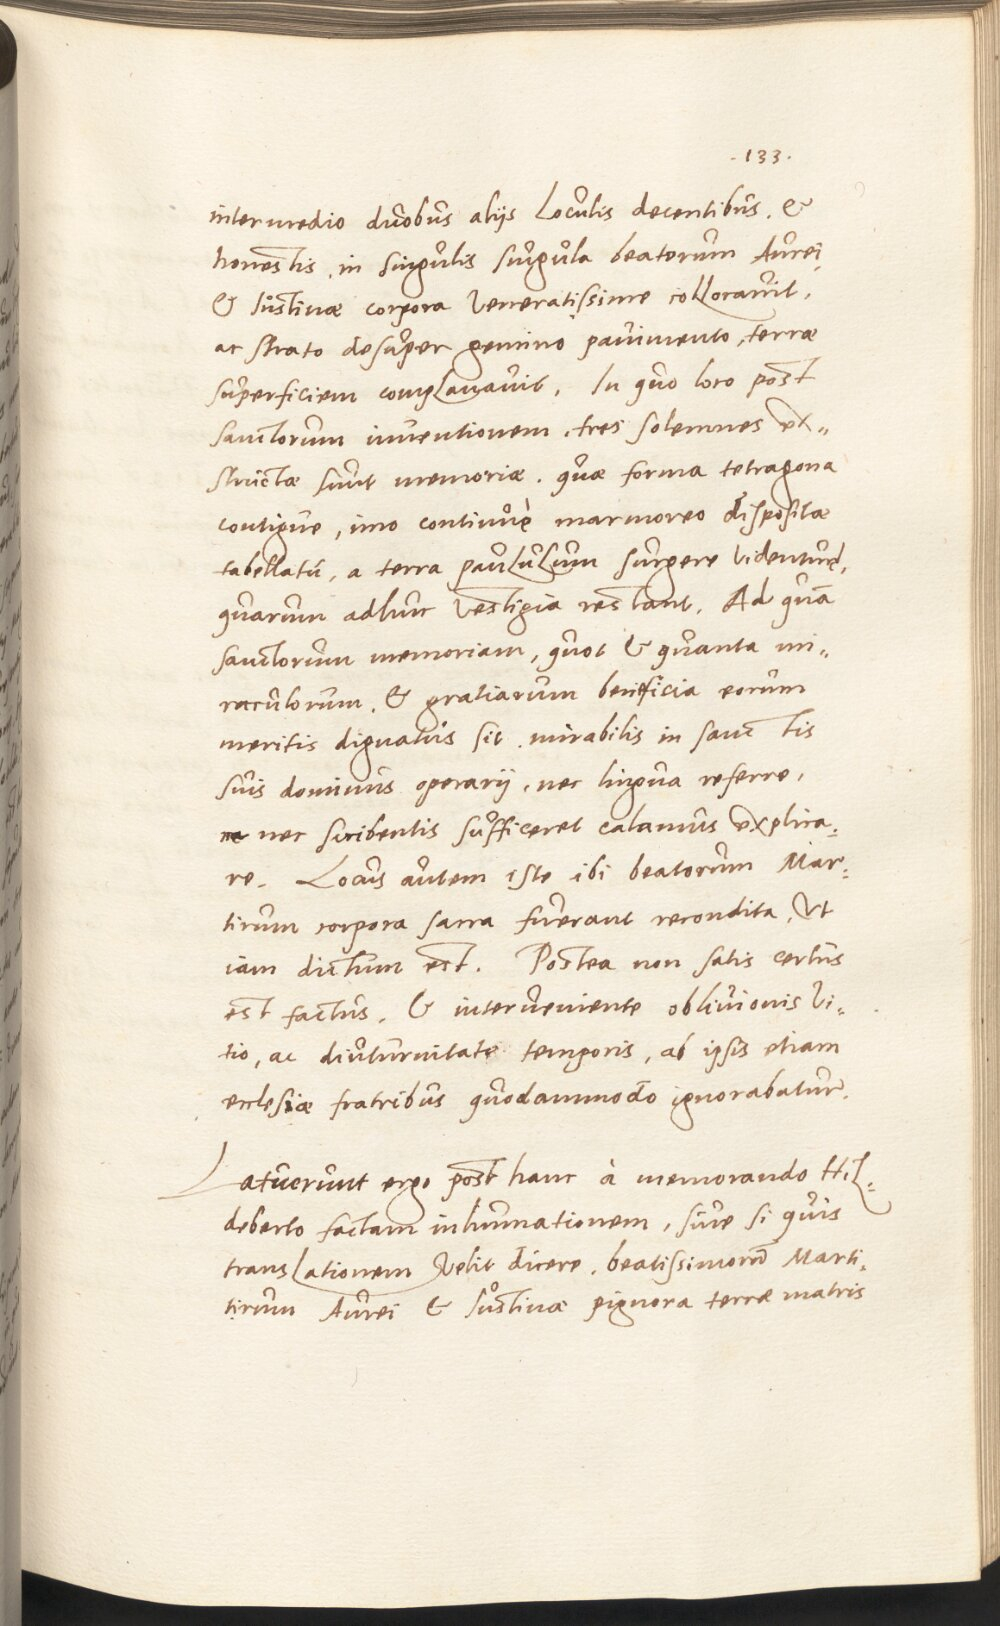 .133.
intermedio duobus alijs Loculis decentibus, &
honestis, in singulis singula beatorum Aurei,
& Iustinæ corpora veneratissime collocauit,
ac strato desuper gemino pauimento, terræ
superficiem complanauit. In quo loco post
sanctorum inuentionem, tres solemnes ex„
structæ sunt memoriæ. quæ forma tetragona
contigue, imo continuè marmoreo dispositæ
tabellatu, a terra paululum surgere videntur,
quarum adhuc vestigia restant. Ad quā
sanctorum memoriam, quot & quanta mi„
raculorum, & gratiarum beneficia eorum
meritis dignatus sit, mirabilis in sanctis
suis dominus operarij, nec lingua referre,
ne nec scribentis sufficeret calamus explica„
re. Locus autem iste ibi beatorum Mar„
tirum corpora sacra fuerant recondita, vt
iam dictum est. Postea non satis certus
est factus, & interueniente obliuionis vi„
tio, ac diuturnitate temporis, ab ipsis etiam
ecclesiæ fratribus quodammodo ignorabatur.
Latuerunt ergo post hanc à memorando Hil„
deberto factam inhumationem, siue si quis
translationem velit dicere, beatissimorū Marti„
tirum Aurei & Iustinæ pignora terræ matris